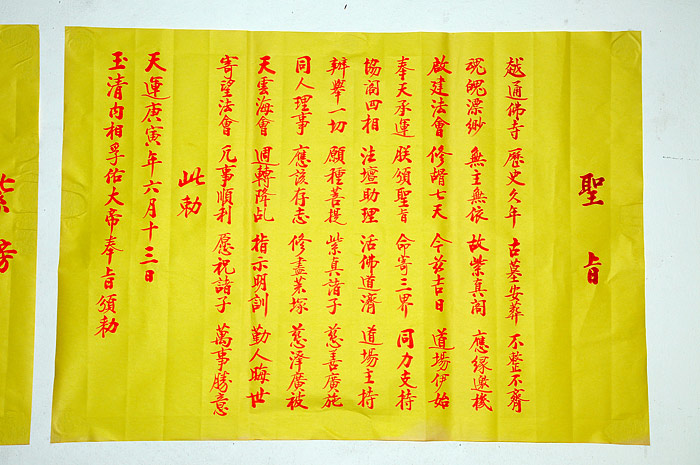 聖旨
越通佛寺 歷史久年 古墓安葬 不整不齊
魂魄漂缈 無主無依 故紫真阁 應緣邀機
啟建法會 修齋七天 今茲吉日 道場伊始
奉天承運 朕頒聖旨 命寄三界 同力支持
協閣四相 法壇助理 活佛道濟 道場主持
辦舉一切 願種菩提 紫真諸子 慈善廣施
同人理事 應該存志 修盡荒塚 慈泽廣被
天雲海會 週轉降乩 指示明訓 勤人晦世
寄望法會 凡事順利 愿祝諸子 萬事勝意
此勅
天運庚寅年六月十三日
玉清內相孚佑大帝奉旨頒勅
紫